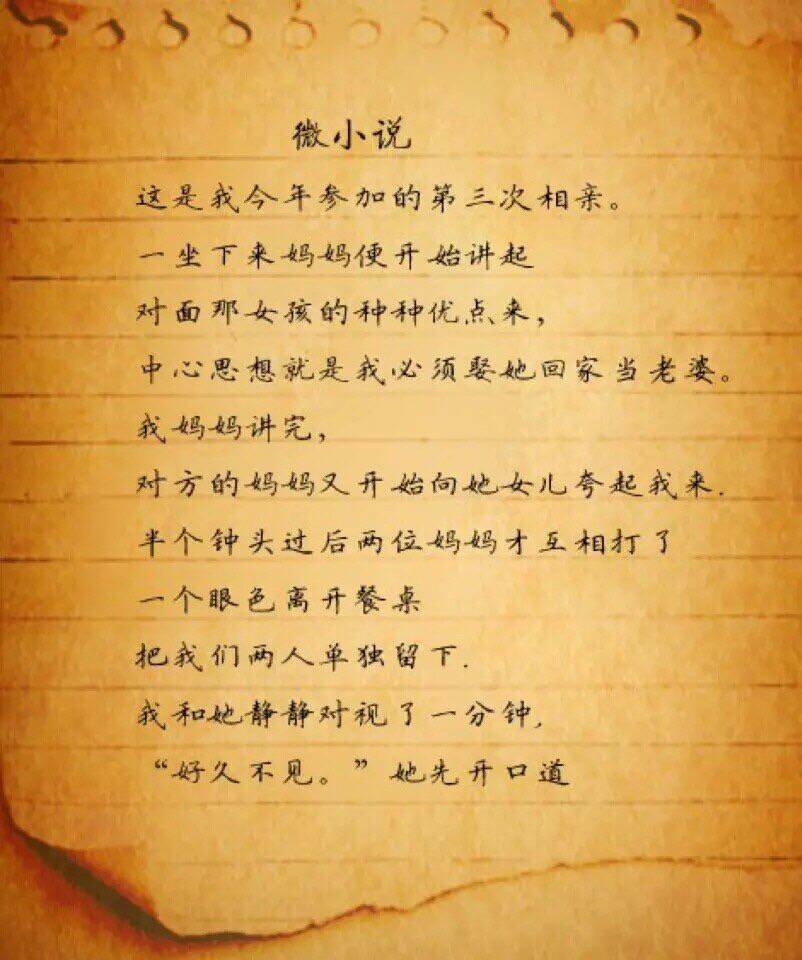 微小说
这是我今年参加的第三次相亲。
一坐下来妈妈便开始讲起
对面那女孩的种种优点来，
中心思想就是我必须娶她回家当老婆。
我妈妈讲完，
对方的妈妈又开始向她女儿夸起我来.
半个钟头过后两位妈妈才互相打了
一个眼色离开餐桌
把我们两人单独留下.
我和她静静对视了一分钟,
“好久不见。”她先开口道